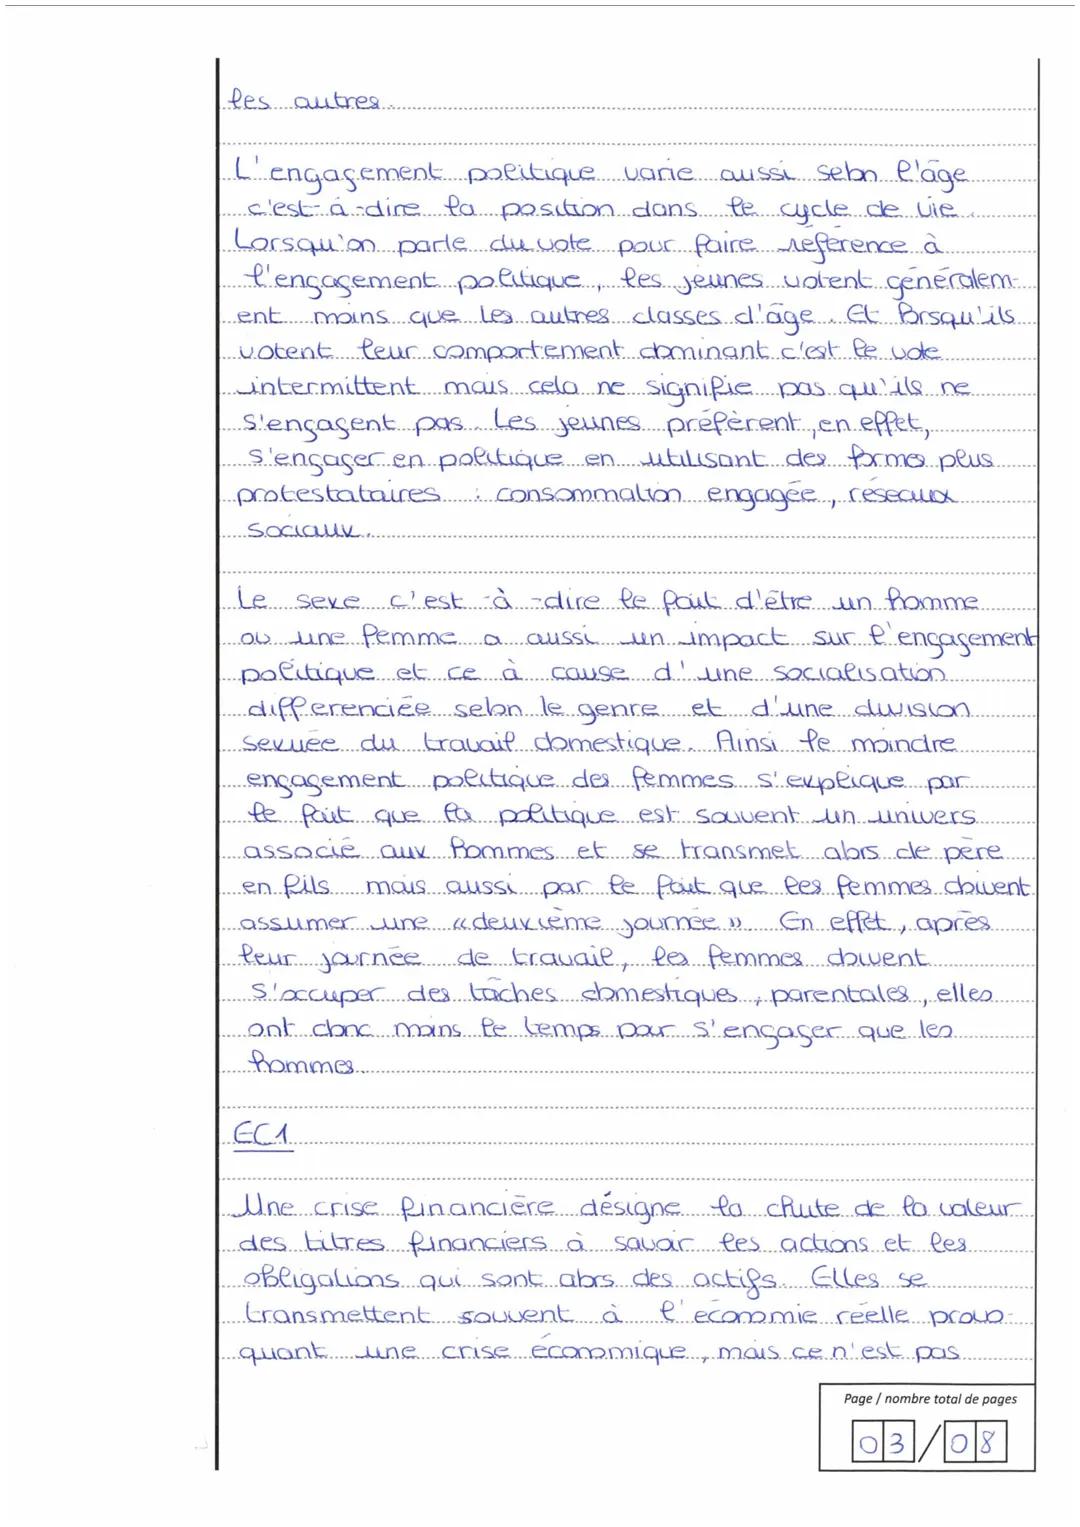 les autres.
L'engagement politique varie aussi selon l'âge
c'est-à-dire la position dans le cycle de vie.
Lorsqu'on parle du vote pour faire référence à
l'engagement politique, les jeunes votent généralem-
ent moins que les autres classes d'âge. Et lorsqu'ils
votent leur comportement dominant c'est le vote
intermittent mais cela ne signifie pas qu'ils ne
s'engagent pas. Les jeunes préfèrent, en effet,
s'engager en politique en utilisant des formes plus
protestataires : consommation engagée, réseaux
sociaux.
Le sexe c'est-à-dire le fait d'être un homme
ou une femme a aussi un impact sur l'engagement
politique et ce à cause d'une socialisation
differenciée selon le genre et d'une division
sexuée du travail domestique. Ainsi le moindre
engagement politique des femmes s'explique par
le fait que la politique est souvent un univers
associé aux hommes et se transmet alors de père
en fils mais aussi par le fait que les femmes doivent
assumer une « deuxième journée ». En effet, après
leur journée de travail, les femmes doivent
s'occuper des tâches domestiques, parentales, elles
ont donc moins le temps pour s'engager que les
hommes.
EC1
Une crise financière désigne la chute de la valeur
des titres financiers à savoir les actions et les
obligations qui sont alors des actifs. Elles se
transmettent souvent à l'économie réelle provo-
quant une crise économique, mais ce n'est pas
Page / nombre total de pages
03/08